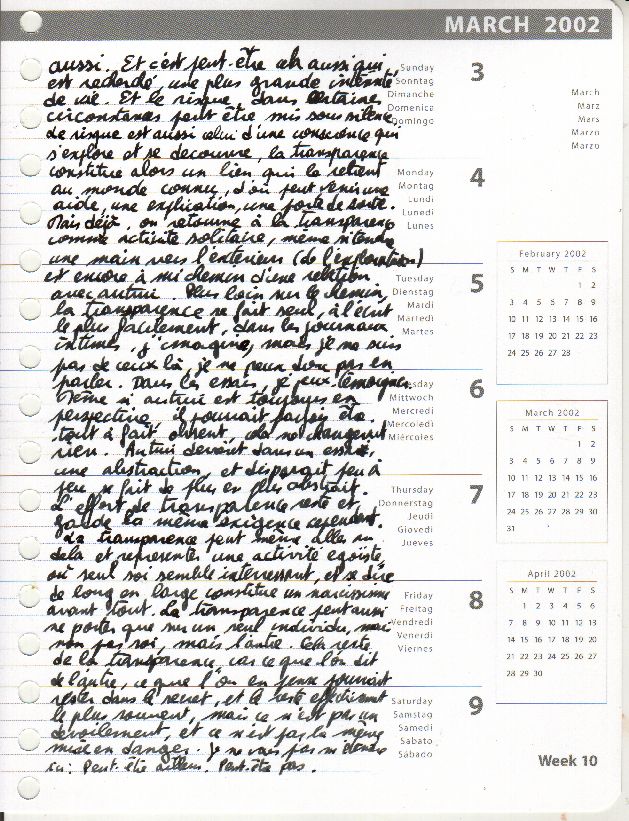 MARCH 2002
aussi. Et c'est peut-être cela aussi qui
est recherché, une plus grande intensité
de vie. Et le risque, dans certaines
circonstances peut être mis sous silence
de risque est aussi celui d'une conscience qui
s'explore et se découvre, la transparence
constitue alors un lien qui la retient
au monde connu, d'où peut venir une
aide, une explication, une porte de sortie.
Mais déjà, on retourne à la transparence
comme activité solitaire, même si tendre
une main vers l'extérieur (de l'exploration)
est encore à mi chemin d'une relation
avec autrui. Plus loin sur le chemin,
la transparence se fait seul, à l'écrit
le plus facilement, dans les journaux
intimes, j'imagine, mais je ne suis
pas de ceux là, je ne peux donc pas en
parler. Dans les essais, je peux témoigner.
Même si autrui est toujours en
perspective, il pourrait parfois être
tout à fait absent, cela ne changerait
rien. Autrui devient dans un essai,
une abstraction, et disparaît peu à
peu, se fait de plus en plus abstrait.
L'effort de transparence reste et
garde la même exigence cependant.
La transparence peut même aller au
delà et représenter une activité egoïste,
où seul soi semble intéressant, et se dire
de long en large constitue un narcissisme
avant tout. La transparence peut aussi
ne porter que sur un seul individu, mais
non pas soi, mais l'autre. Cela reste
de la transparence, car ce que l'on dit
de l'autre, ce que l'on en pense pourrait
rester dans le secret, et le reste effectivement
le plus souvent, mais ce n'est pas un
dévoilement, et ce n'est pas la même
mise en danger. Je ne vais pas m'étendre
ici. Peut-être ailleurs. Peut-être pas.
Sunday 3
Sonntag
Dimanche
Domenica
Domingo
March
März
Mars
Marzo
Marzo
Monday 4
Montag
Lundi
Lunedì
Lunes
Tuesday 5
Dienstag
Mardi
Martedì
Martes
Mittwoch 6
Mercredi
Mercoledì
Miércoles
Thursday 7
Donnerstag
Jeudi
Giovedì
Jueves
Friday 8
Freitag
Vendredi
Venerdì
Viernes
Saturday 9
Samstag
Samedi
Sabato
Sábado
February 2002
S M T W T F S
1 2
3 4 5 6 7 8 9
10 11 12 13 14 15 16
17 18 19 20 21 22 23
24 25 26 27 28
March 2002
S M T W T F S
1 2
3 4 5 6 7 8 9
10 11 12 13 14 15 16
17 18 19 20 21 22 23
24 25 26 27 28 29 30
31
April 2002
S M T W T F S
1 2 3 4 5 6
7 8 9 10 11 12 13
14 15 16 17 18 19 20
21 22 23 24 25 26 27
28 29 30
Week 10